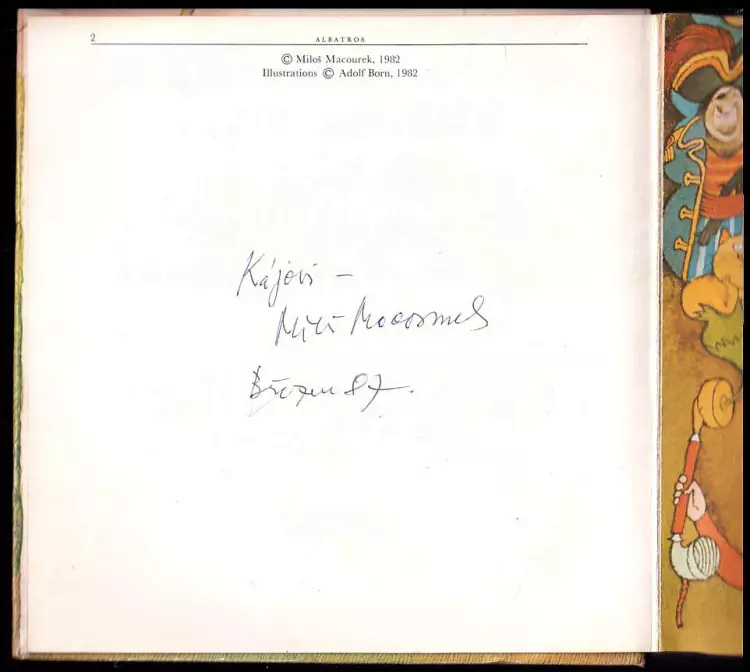 2
ALBATROS
© Miloš Macourek, 1982
Illustrations © Adolf Born, 1982
Kájovi –
Miloš Macourek
Březen 87.